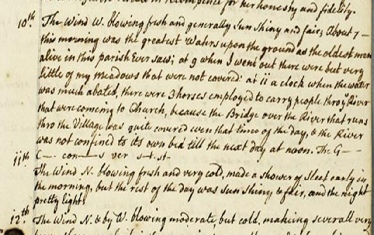 for her honesty and fidelity.
10th The Wind W. blowing fresh and generally Sun Shiny and fair, About 7 –
this morning was the greatest Waters upon the ground as the oldest man
alive in this parish Ever saw; at 9 when I went out there were but very
little of my meadows that were not covered: at 11 a clock when the water
was much abated, there were 3 horses employed to carry people thro' River
that were coming to Church, because the Bridge over the River that runs
thro the Village was quite covered even that time of the day, & the River
was not confined to its own bed till the next day at noon. The G–
C–
11th The Wind N. blowing fresh and very cold, made a shower of Sleet early in
the morning, but the rest of the day was Sun Shiny & fair, and the night
pretty light.
12th. The Wind N. & by W. blowing moderate, but cold, making severall very